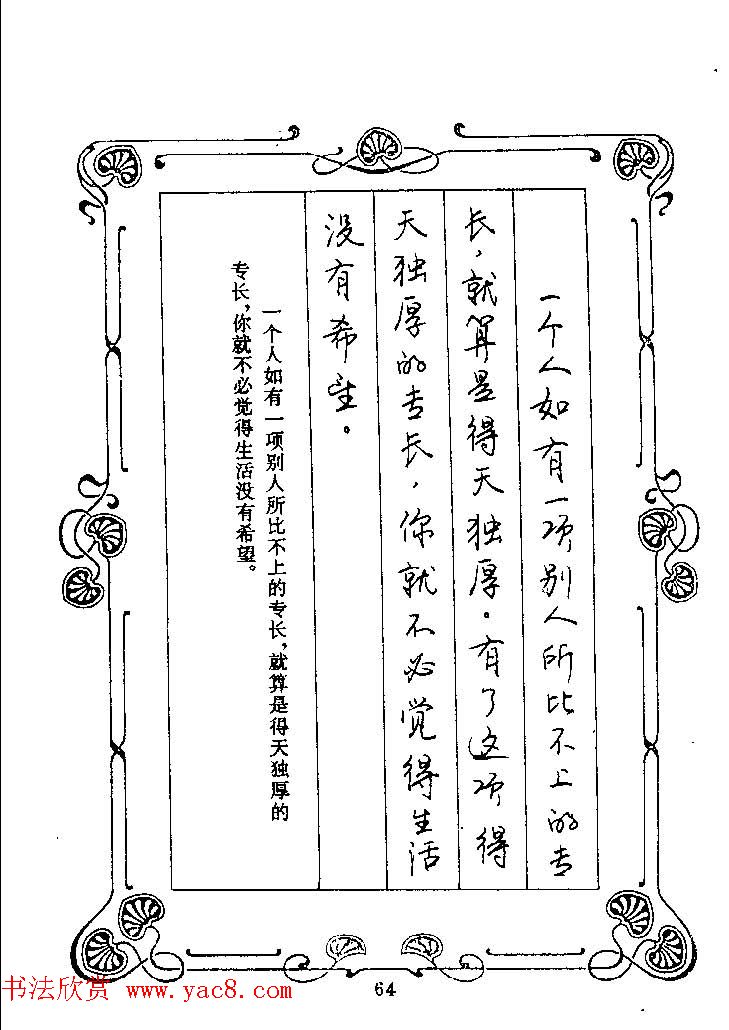 一个人如有一项别人所比不上的专
长，就算是得天独厚。有了这项得
天独厚的专长，你就不必觉得生活
没有希望。
一个人如有一项别人所比不上的专长，就算是得天独厚的
专长，你就不必觉得生活没有希望。
64
书法欣赏 www.yac8.com